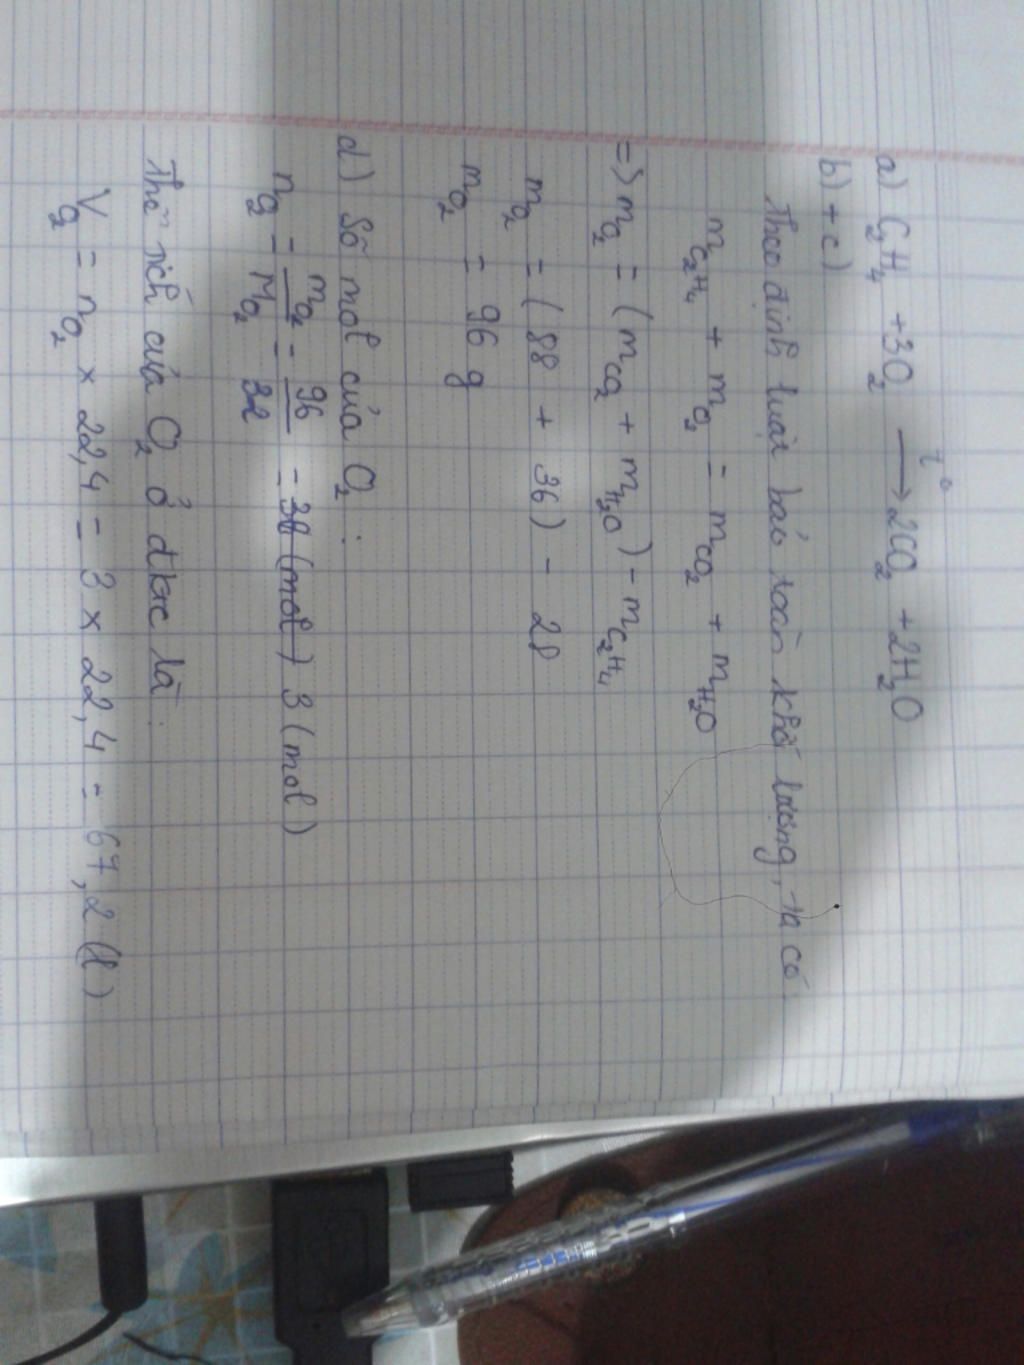 a) C₂H₄ + 3O₂ —t°→ 2CO₂ + 2H₂O
b) + c)
Theo định luật bảo toàn khối lượng, ta có
m C₂H₄ + m O₂ = m CO₂ + m H₂O
=> m O₂ = (m CO₂ + m H₂O) - m C₂H₄
m O₂ = (88 + 36) - 28
m O₂ = 96 g
d) Số mol của O₂ :
n O₂ = m O₂ / M O₂ = 96 / 32 = 3 (mol)
Thể tích của O₂ ở đktc là :
V O₂ = n O₂ × 22,4 = 3 × 22,4 = 67,2 (l)